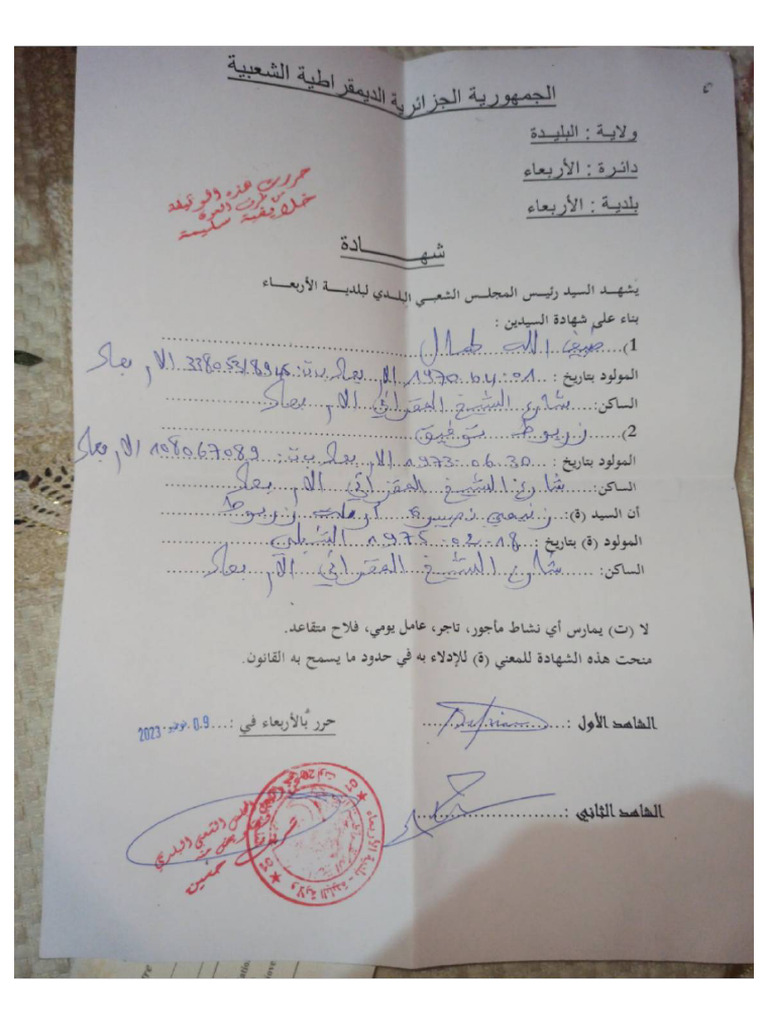 الجمهورية الجزائرية الديمقراطية الشعبية
ولاية : البليدة
دائرة : الأربعاء
بلدية : الأربعاء
حررت هذه الوثيقة
من طرف
سليمة
شهـــــادة
يشهد السيد رئيس المجلس الشعبي البلدي لبلدية الأربعاء
بناء على شهادة السيدين :
1) ضيف الله كمال
المولود بتاريخ : 01-04-1970 الأربعاء ب ت: الأربعاء
الساكن: شارع الشيخ المقراني الأربعاء
2) زربوط توفيق
المولود بتاريخ : 30-06-1973 الأربعاء ب ت: 108067089 الأربعاء
الساكن: شارع الشيخ المقراني الأربعاء
أن السيد (ة): أرملة زربوط
المولود (ة) بتاريخ : 18-02-1975 الشبلي
الساكن: شارع الشيخ المقراني الأربعاء
لا (ت) يمارس أي نشاط مأجور، تاجر، عامل يومي، فلاح متقاعد.
منحت هذه الشهادة للمعني (ة) للإدلاء به في حدود ما يسمح به القانون.
الشاهد الأول :
حرر بالأربعاء في : 09 2023
الشاهد الثاني :
المجلس الشعبي البلدي
ولاية البليدة - بلدية الأربعاء